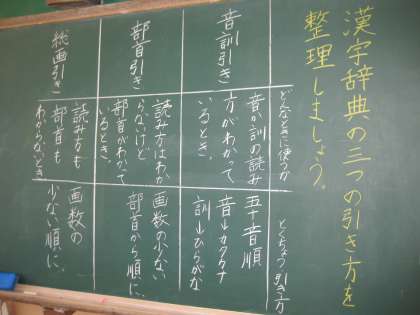 漢字辞典の三つの引き方を
整理しましょう。
どんなときに使うか
とくちょう 引き方
音訓引き
音か訓の読み
方がわかって
いるとき。
五十音順
音→カタカナ
訓→ひらがな
部首引き
読み方はわか
らないけど
部首がわかって
いるとき。
画数の少ない
部首から順に。
総画引き
読み方も
部首も
わからないとき
画数の
少ない順に。